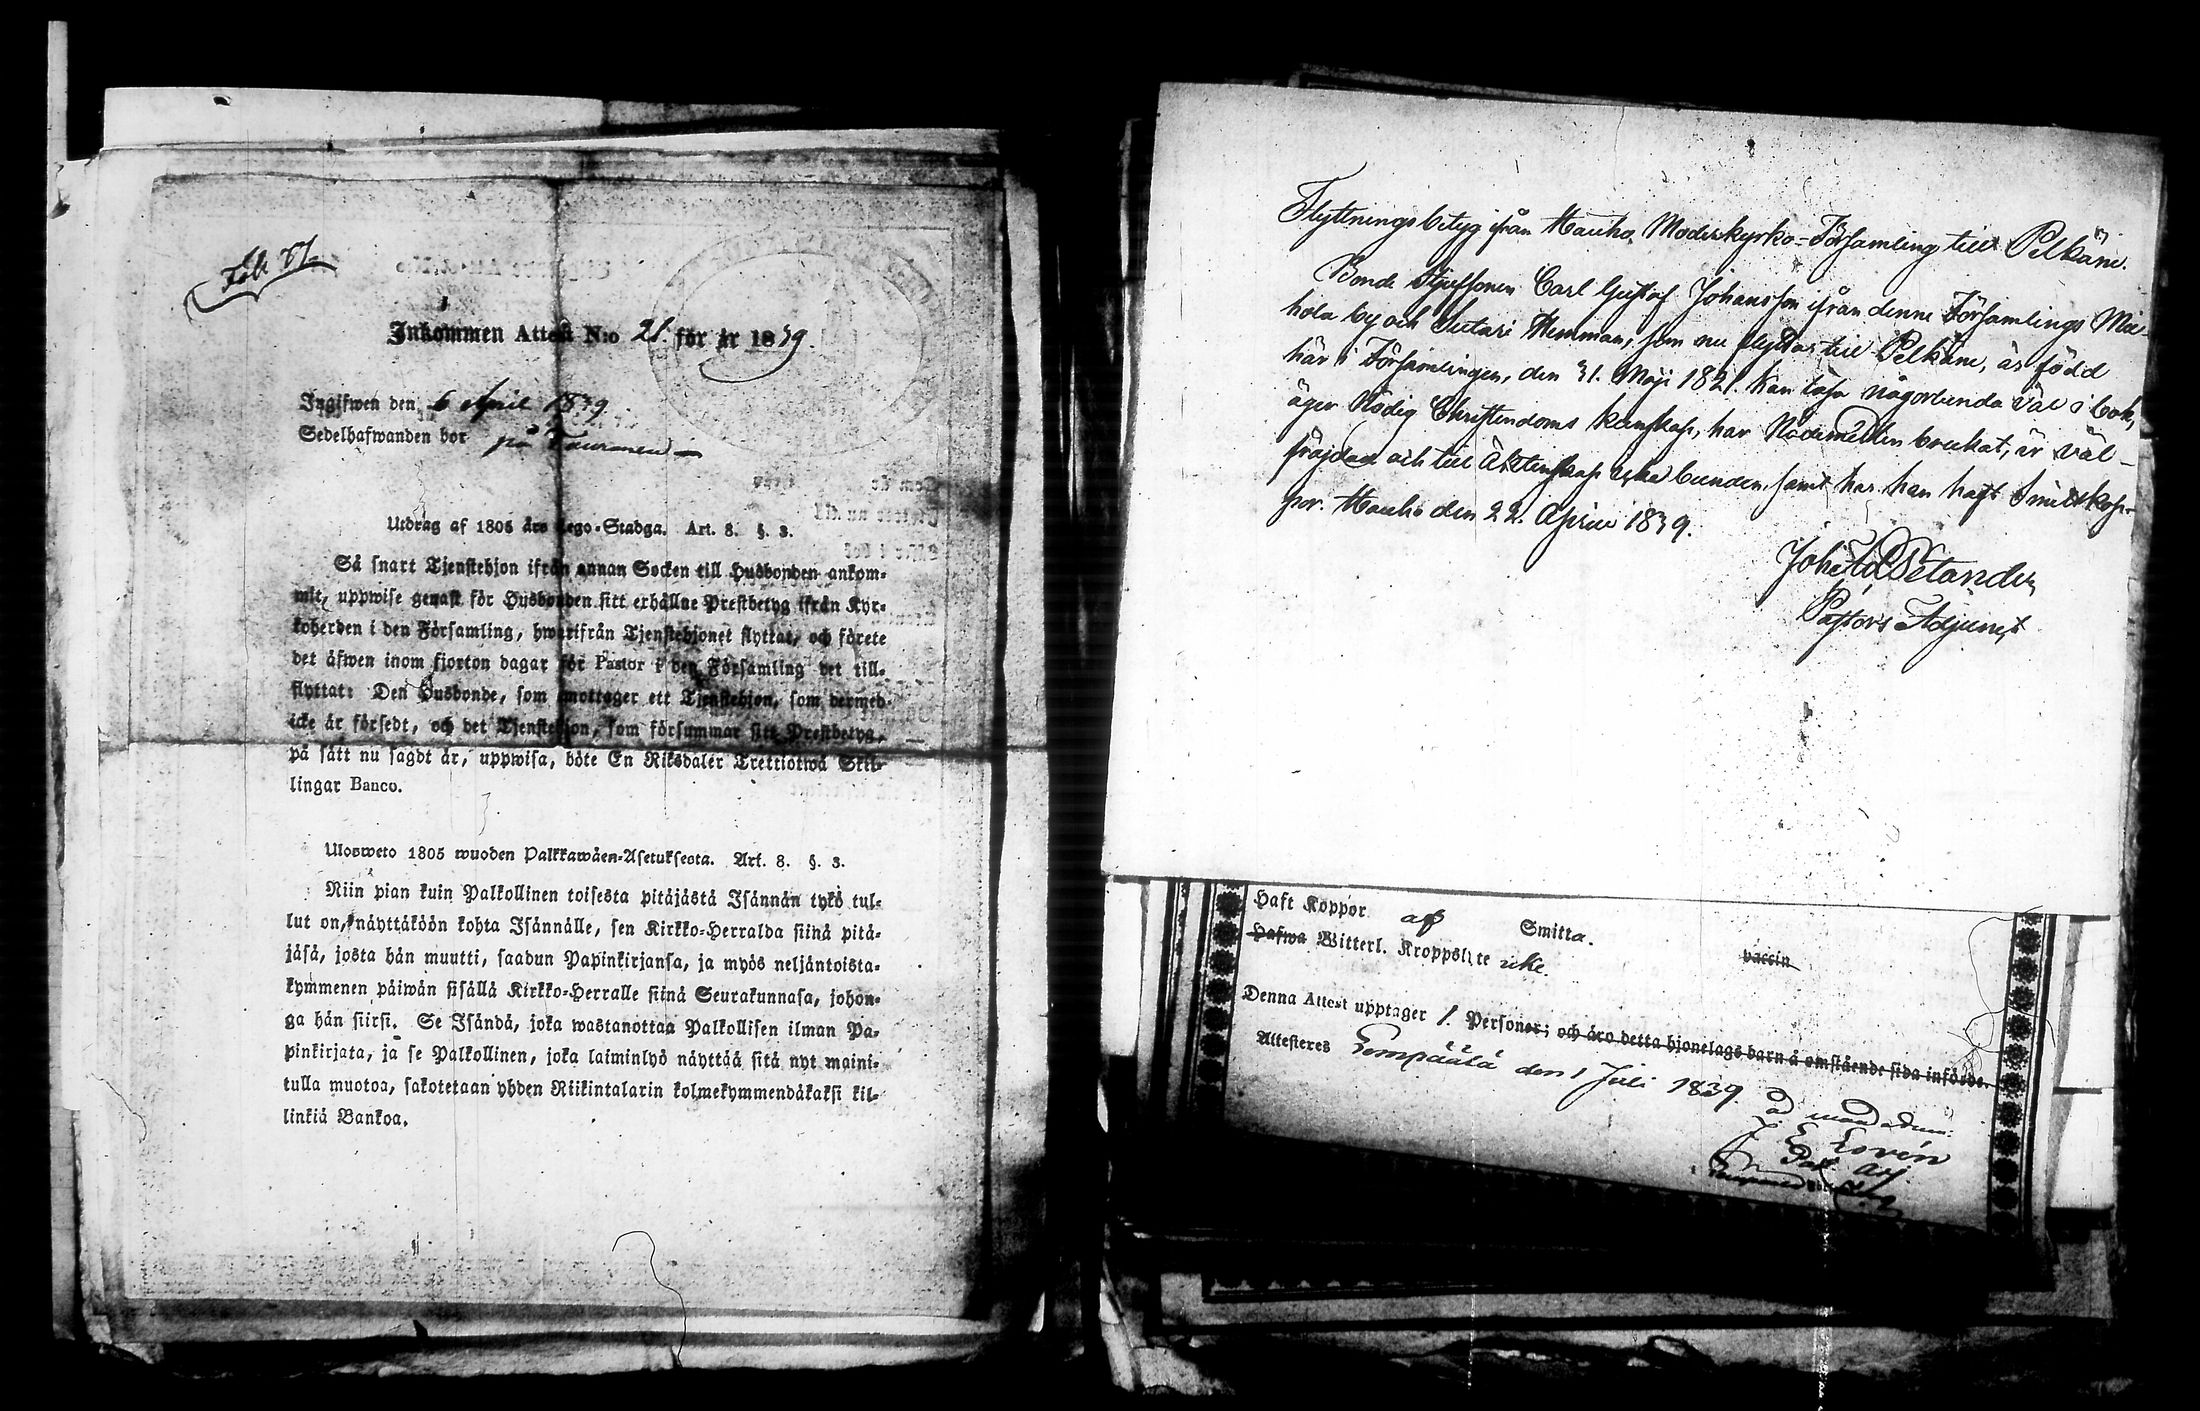 Fol. 77.
Inkommen Attest N:o 21. för år 1839.
Ingifwen den 6 April 1839.
Sedelhafwanden bor på Tauranen
Utdrag af 1805 års Lego-Stadga. Art. 8. §. 3.
Så snart Tjenstehjon ifrån annan Socken till Husbonden ankom-
mit, uppwise genast för Husbonden sitt erhållne Prestbetyg ifrån Kyr-
koherden i den Församling, hwarifrån Tjenstehjonet flyttat, och förete
det äfwen inom fjorton dagar för Pastor i den Församling det till-
flyttat: Den Husbonde, som emottager ett Tjenstehjon, som dermed
icke är försedt, och det Tjenstehjon, som försummar sitt Prestbetyg,
på sätt nu sagdt är, uppwisa, böte En Riksdaler Trettiotwå Skil-
lingar Banco.
Ulosweto 1805 wuoden Palkkawäen-Asetuksesta. Art. 8. §. 3.
Niin pian kuin Palkollinen toisesta pitäjästä Isännän tykö tul-
lut on, näyttäköön kohta Isännälle, sen Kirkko-Herralda siinä pitä-
jäsä, josta hän muutti, saadun Papinkirjansa, ja myös neljäntoista-
kymmenen päiwän sisällä Kirkko-Herralle siinä Seurakunnasa, johon-
ga hän siirsi. Se Isändä, joka wastanottaa Palkollisen ilman Pa-
pinkirjata, ja se Palkollinen, joka laiminlyö näyttää sitä nyt maini-
tulla muotoa, sakotetaan yhden Riikintalarin kolmekymmendäkaksi kil-
linkiä Bankoa.
Flyttningsbetyg ifrån Hauho Moderkyrko-Församling till Pelkäne.
Bonde Styfsonen Carl Gustaf Johansson ifrån denne Församlings
hola by och Hemman, som nu flyttar till Pelkäne, är född
här i Församlingen, den 31. Maji 1821. kan läsa någorlunda väl i bok,
äger nödig Christendoms kunskap, har Nådemedlen brukat, är väl-
fräjdad och till Äktenskap icke bunden, samt har han haft Smittkop-
por. Hauho den 22. April 1839.
Pastors Adjunct
Haft Koppor af Smitta. vaccin
Hafwa Witterl. Kroppslyte icke.
Denna Attest upptager 1. Personer; och äro detta hjonelags barn å omstående sida införde.
Attesteres Lempäälä den 1 Juli 1839.
ad mandatum: